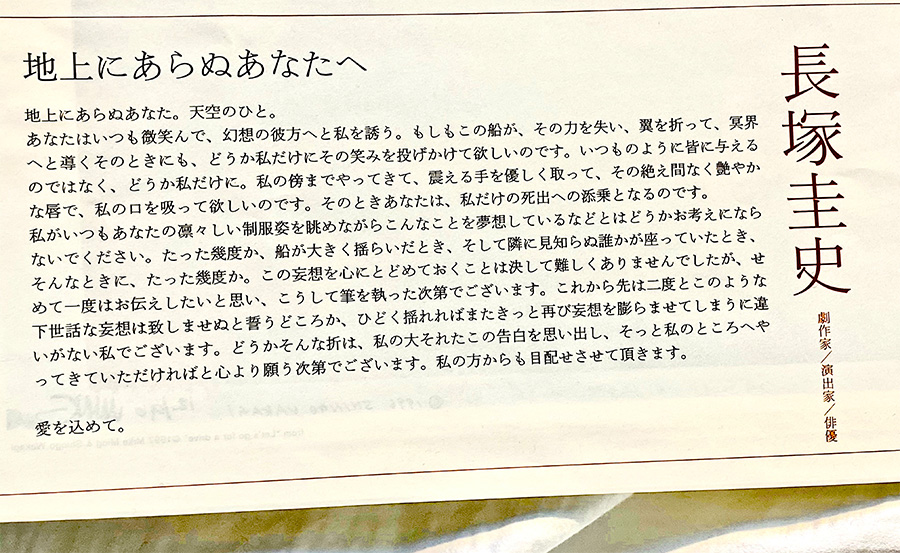 地上にあらぬあなたへ
長塚圭史
劇作家／演出家／俳優
地上にあらぬあなた。天空のひと。
あなたはいつも微笑んで、幻想の彼方へと私を誘う。もしもこの船が、その力を失い、翼を折って、冥界
へと導くそのときにも、どうか私だけにその笑みを投げかけて欲しいのです。いつものように皆に与える
のではなく、どうか私だけに。私の傍までやってきて、震える手を優しく取って、その絶え間なく艶やか
な唇で、私の口を吸って欲しいのです。そのときあなたは、私だけの死出への添乗となるのです。
私がいつもあなたの凛々しい制服姿を眺めながらこんなことを夢想しているなどとはどうかお考えになら
ないでください。たった幾度か、船が大きく揺らいだとき、そして隣に見知らぬ誰かが座っていたとき、
そんなときに、たった幾度か。この妄想を心にとどめておくことは決して難しくありませんでしたが、せ
めて一度はお伝えしたいと思い、こうして筆を執った次第でございます。これから先は二度とこのような
下世話な妄想は致しませぬと誓うどころか、ひどく揺れればまたきっと再び妄想を膨らませてしまうに違
いがない私でございます。どうかそんな折は、私の大それたこの告白を思い出し、そっと私のところへや
ってきていただければと心より願う次第でございます。私の方からも目配せさせて頂きます。
愛を込めて。